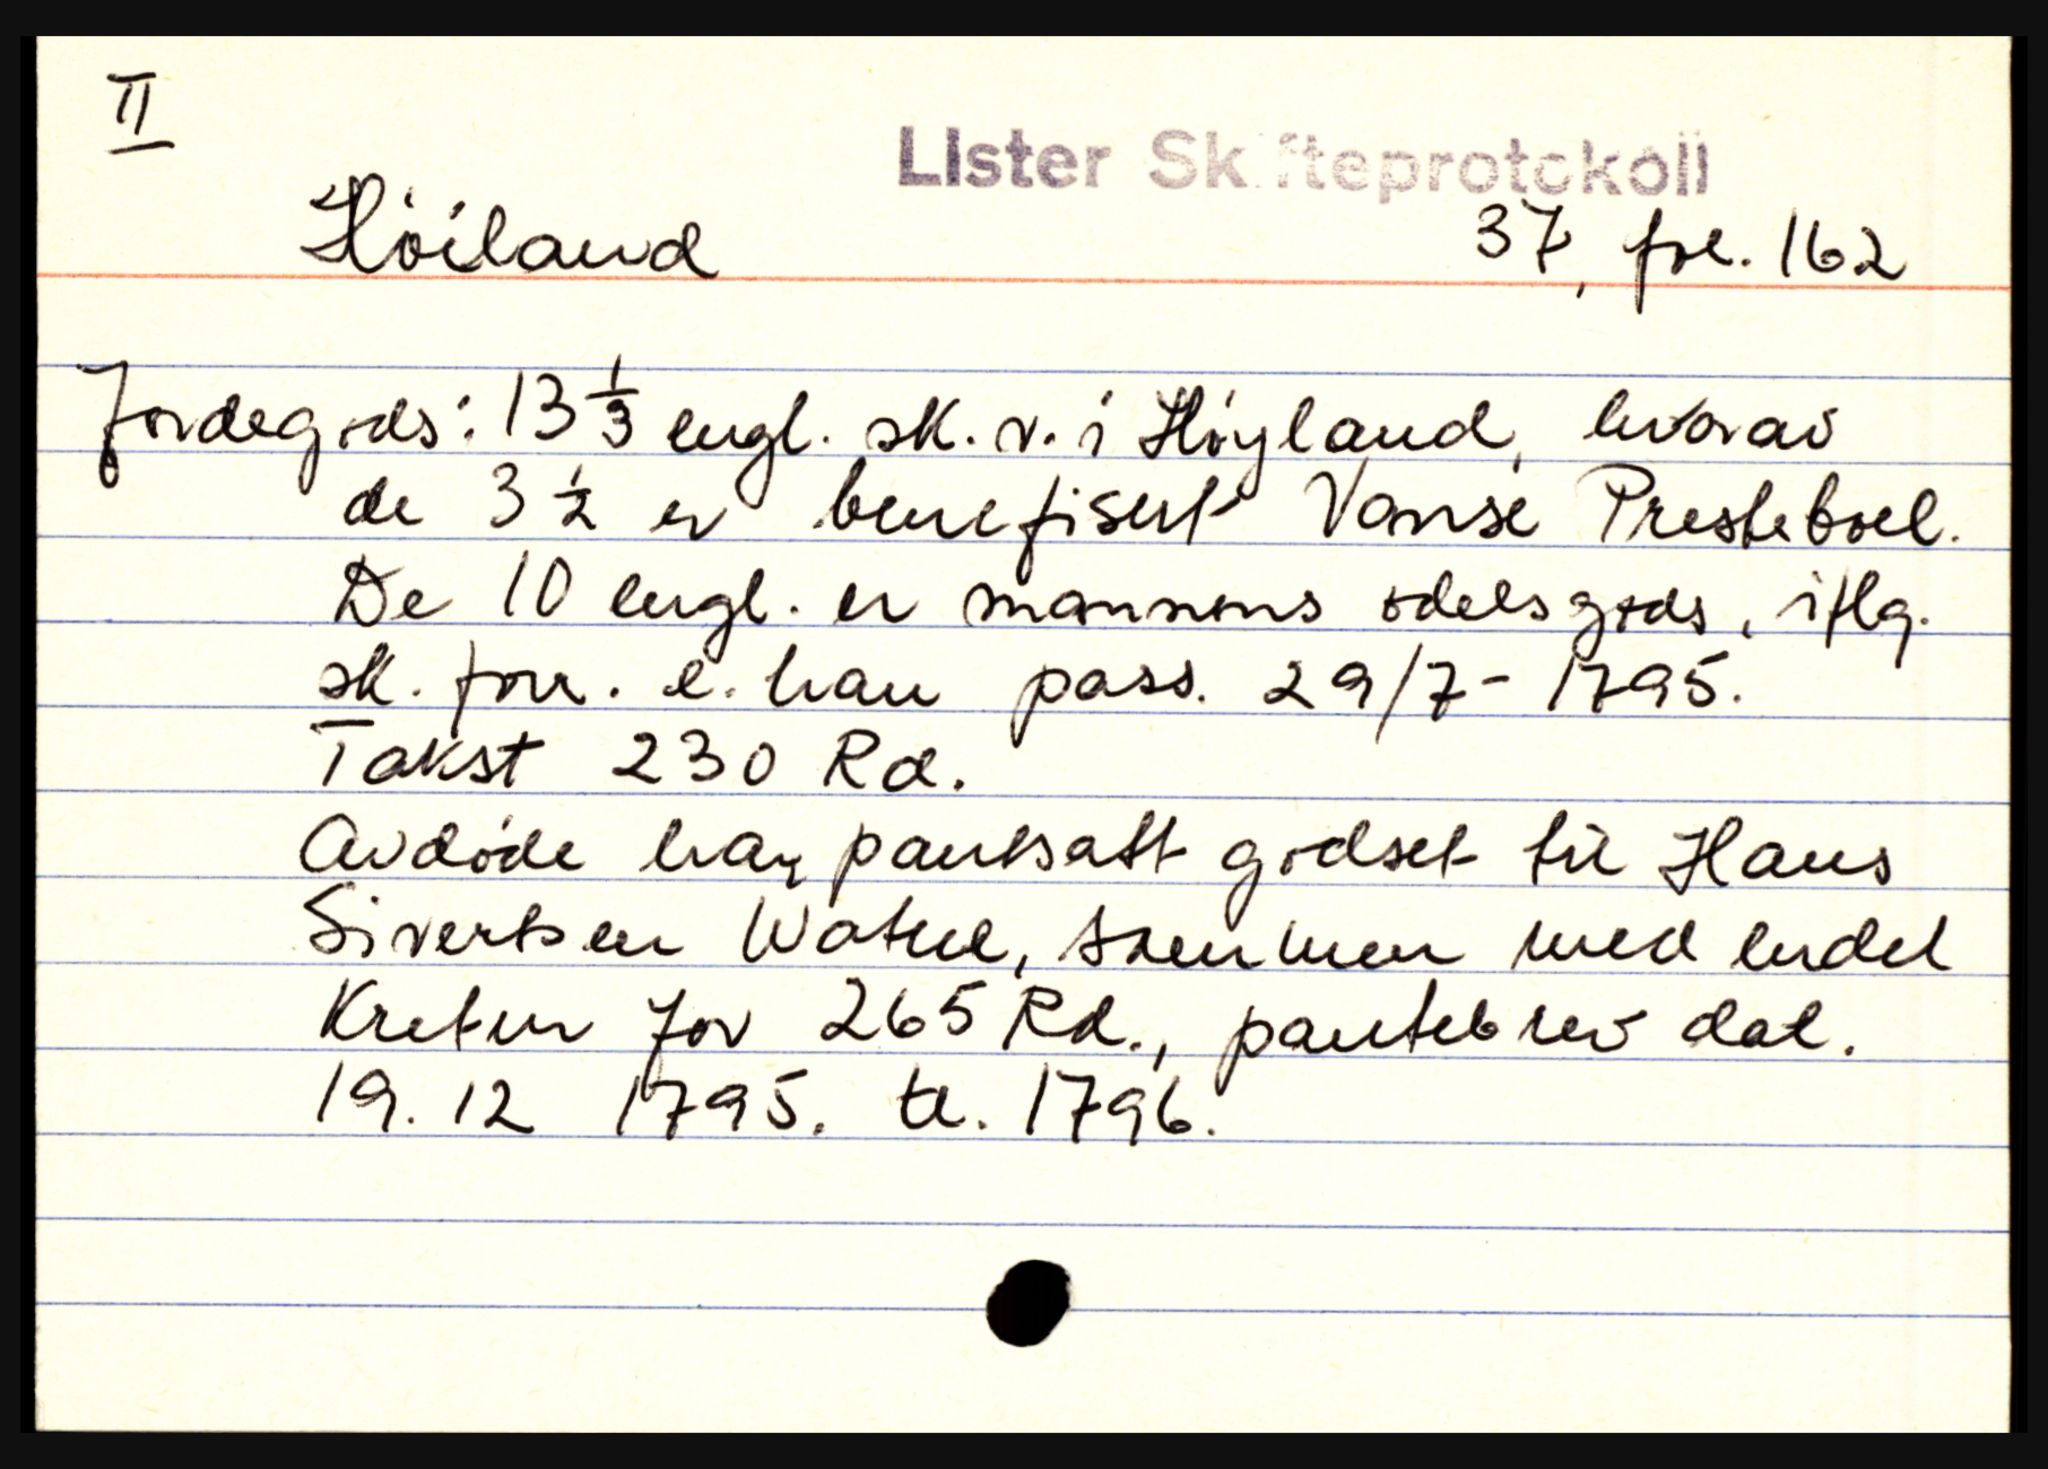 II
Lister Skifteprotokoll
Höiland 37, fol. 162
Jordegods: 13 1/3 engl. sk. v. i Höyland, hvorav
de 3 1/2 er benefisert Vanse Presteboel.
De 10 engl. er mannens odelsgods, iflg.
sk. forr. e. han pass. 29/7 - 1795.
Takst 230 Rd.
Avdöde har pantsatt godset til Hans
Sivertsen Watne, sammen med endel
Kretur for 265 Rd., pantebrev dat.
19. 12 1795. tl. 1796.